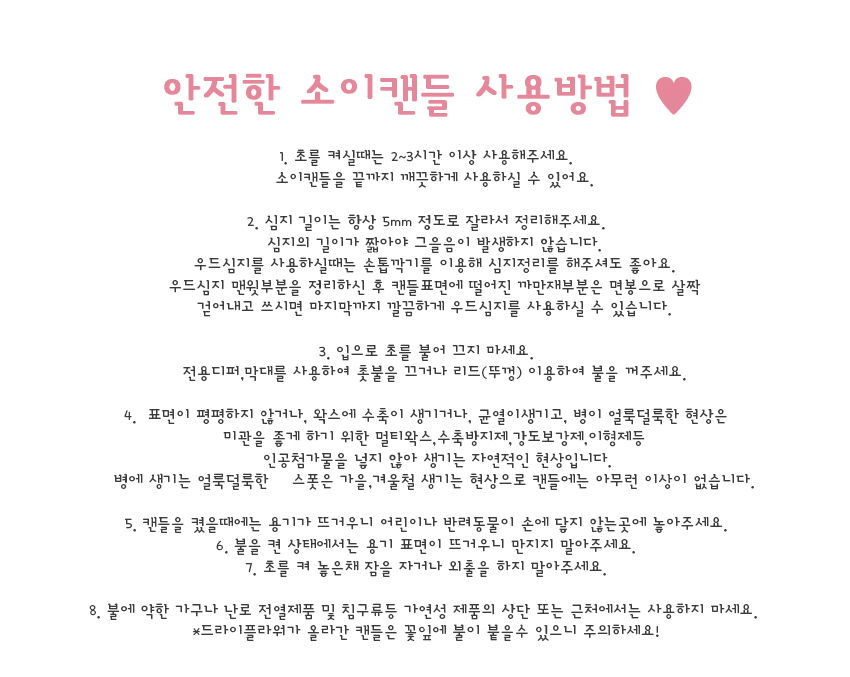 안전한 소이캔들 사용방법 ♥
1. 초를 켜실때는 2~3시간 이상 사용해주세요.
소이캔들을 끝까지 깨끗하게 사용하실 수 있어요.
2. 심지 길이는 항상 5mm 정도로 잘라서 정리해주세요.
심지의 길이가 짧아야 그을음이 발생하지 않습니다.
우드심지를 사용하실때는 손톱깍기를 이용해 심지정리를 해주셔도 좋아요.
우드심지 맨윗부분을 정리하신 후 캔들표면에 떨어진 까만재부분은 면봉으로 살짝
걷어내고 쓰시면 마지막까지 깔끔하게 우드심지를 사용하실 수 있습니다.
3. 입으로 초를 불어 끄지 마세요.
전용디퍼,막대를 사용하여 촛불을 끄거나 리드(뚜껑) 이용하여 불을 꺼주세요.
4. 표면이 평평하지 않거나, 왁스에 수축이 생기거나, 균열이생기고, 병이 얼룩덜룩한 현상은
미관을 좋게 하기 위한 멀티왁스,수축방지제,강도보강제,이형제등
인공첨가물을 넣지 않아 생기는 자연적인 현상입니다.
병에 생기는 얼룩덜룩한 스폿은 가을,겨울철 생기는 현상으로 캔들에는 아무런 이상이 없습니다.
5. 캔들을 켰을때에는 용기가 뜨거우니 어린이나 반려동물이 손에 닿지 않는곳에 놓아주세요.
6. 불을 켠 상태에서는 용기 표면이 뜨거우니 만지지 말아주세요.
7. 초를 켜 놓은채 잠을 자거나 외출을 하지 말아주세요.
8. 불에 약한 가구나 난로 전열제품 및 침구류등 가연성 제품의 상단 또는 근처에서는 사용하지 마세요.
*드라이플라워가 올라간 캔들은 꽃잎에 불이 붙을수 있으니 주의하세요!